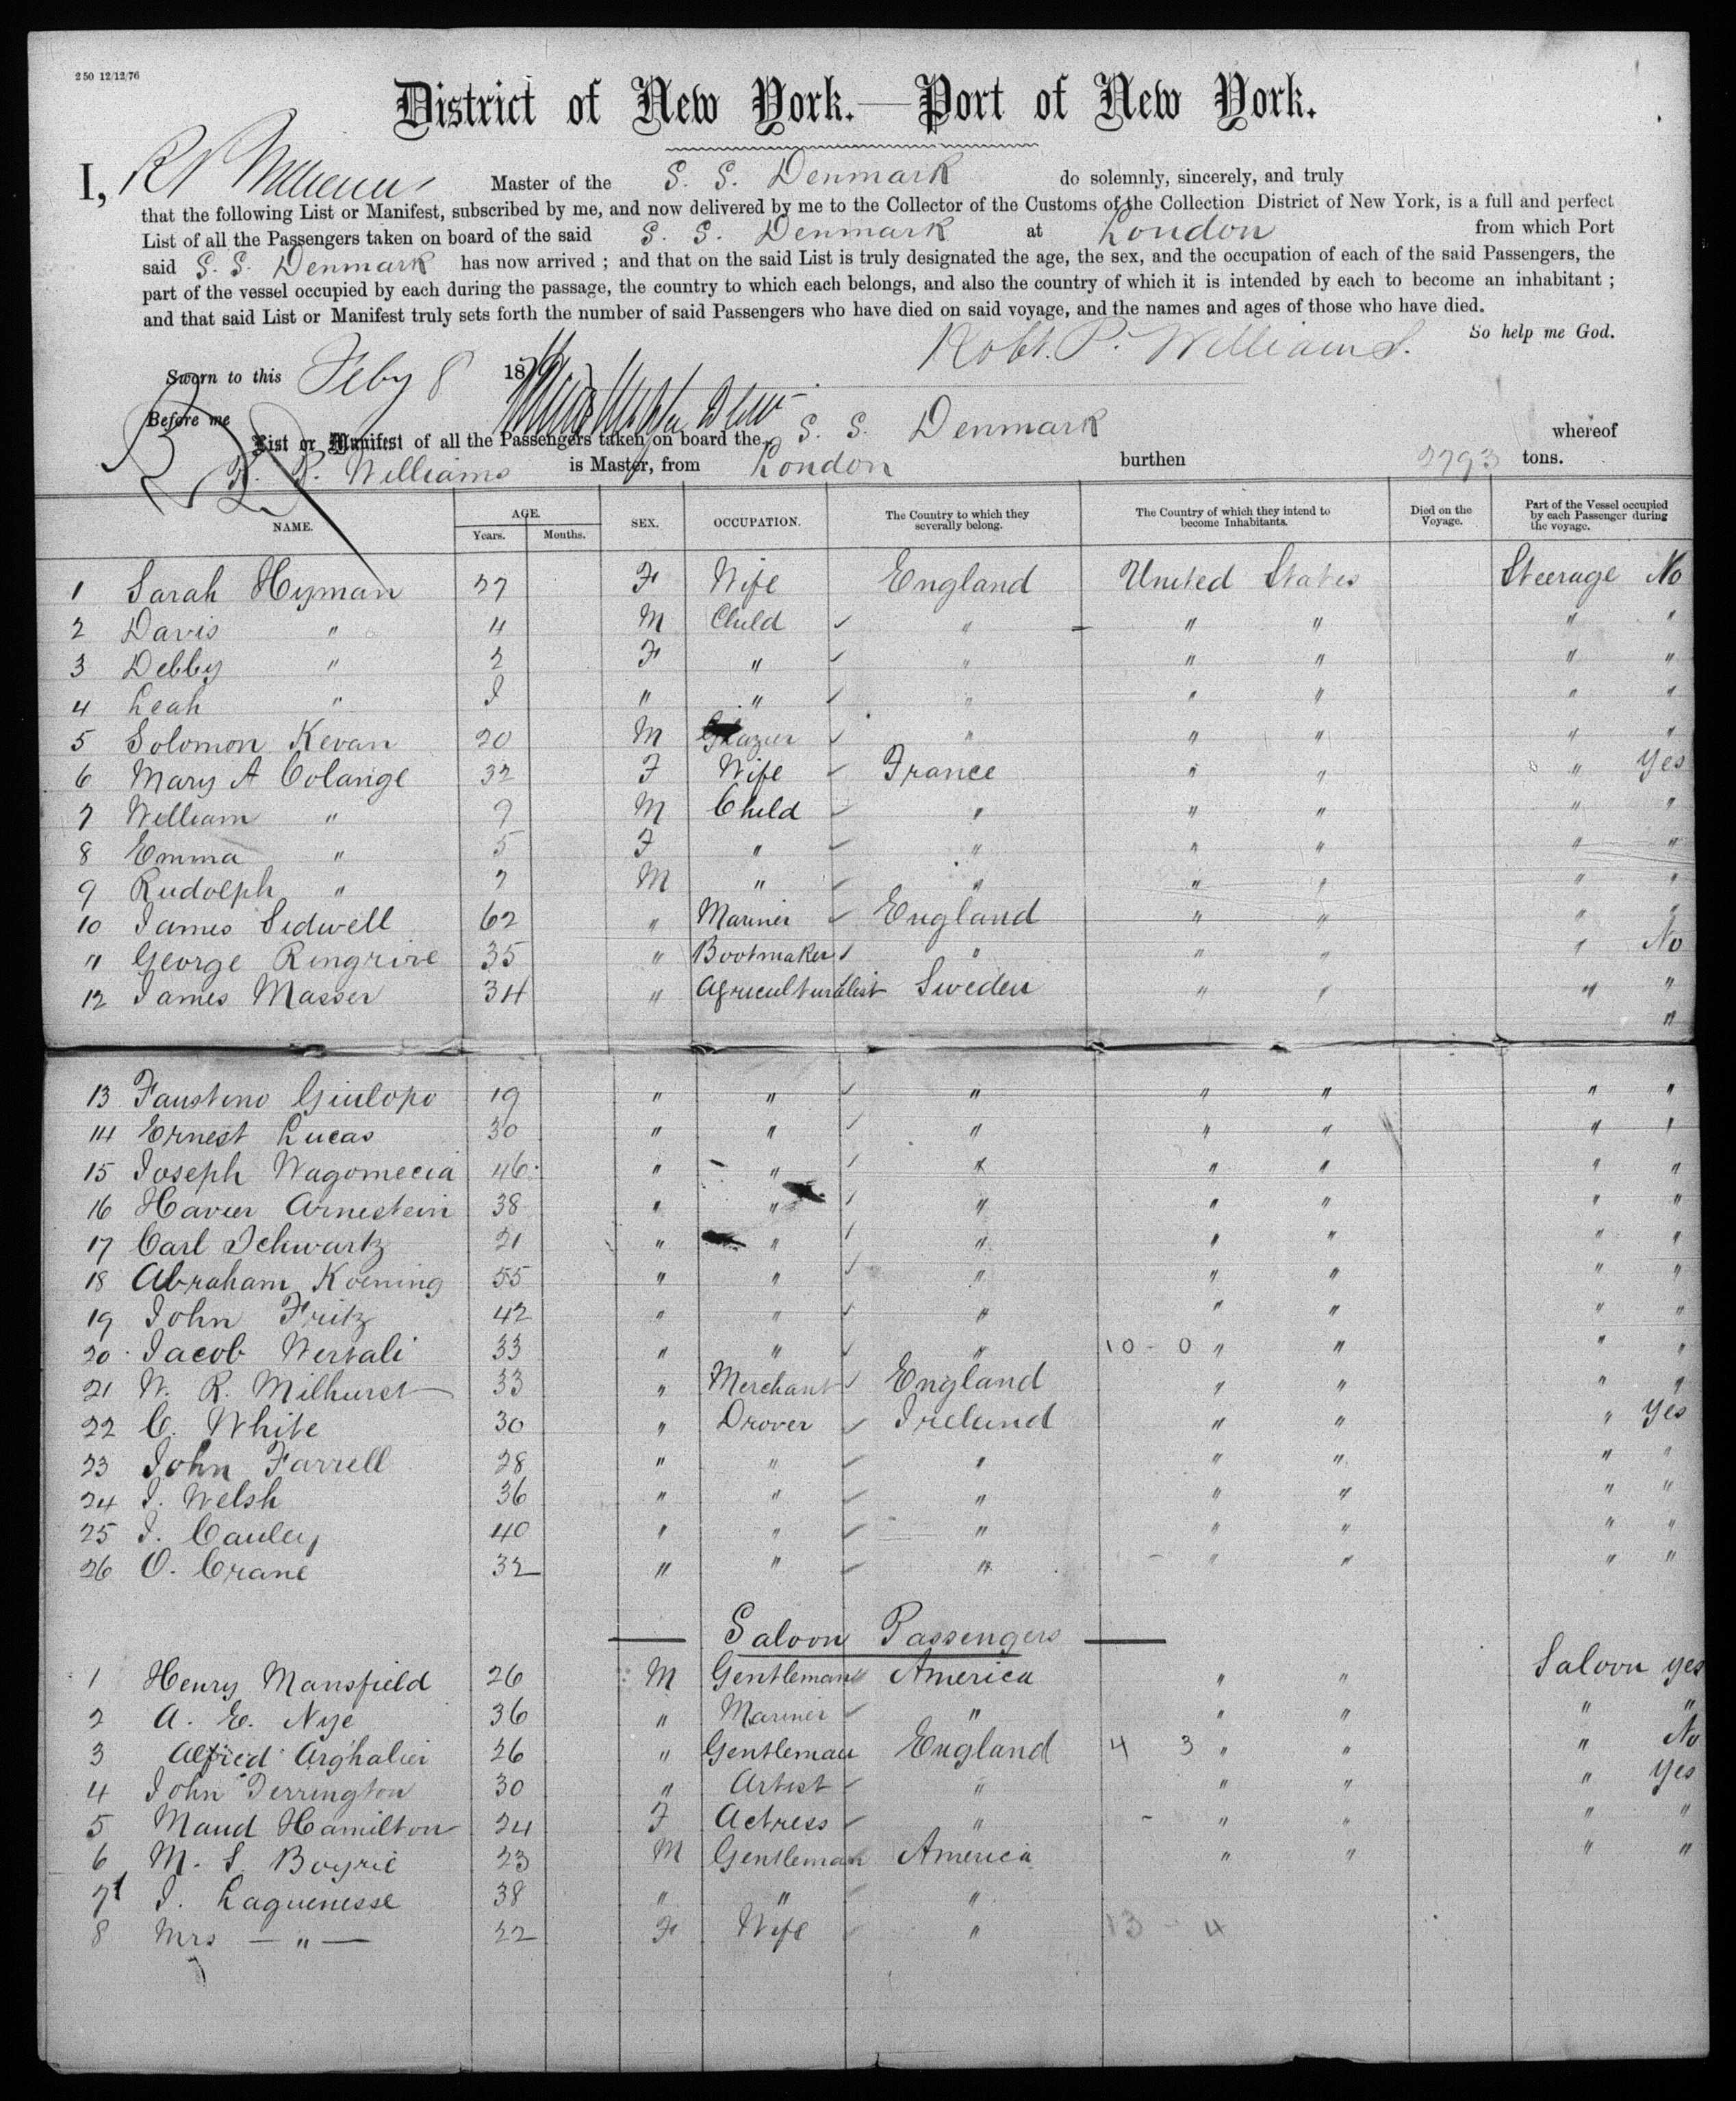 250 12/12/76
District of New York.—Port of New York.
I, Master of the S. S. Denmark do solemnly, sincerely, and truly
that the following List or Manifest, subscribed by me, and now delivered by me to the Collector of the Customs of the Collection District of New York, is a full and perfect
List of all the Passengers taken on board of the said S. S. Denmark at London from which Port
said S. S. Denmark has now arrived ; and that on the said List is truly designated the age, the sex, and the occupation of each of the said Passengers, the
part of the vessel occupied by each during the passage, the country to which each belongs, and also the country of which it is intended by each to become an inhabitant ;
and that said List or Manifest truly sets forth the number of said Passengers who have died on said voyage, and the names and ages of those who have died.
So help me God.
Robt. P. Williams.
Sworn to this Feby 8 18
Before me
List or Manifest of all the Passengers taken on board the S. S. Denmark whereof
R. P. Williams is Master, from London burthen 2793 tons.
NAME. AGE. Years. Months. SEX. OCCUPATION. The Country to which they severally belong. The Country of which they intend to become Inhabitants. Died on the Voyage. Part of the Vessel occupied by each Passenger during the voyage.
1 Sarah Hyman 27 F Wife England United States Steerage No
2 Davis " 4 M Child " " " " "
3 Debby " 2 F " " " " " "
4 Leah " " " " " " " "
5 Solomon Kevan 20 M Glazier " " " " "
6 Mary A Colange 32 F Wife France " " " Yes
7 William " 9 M Child " " " " "
8 Emma " 5 F " " " " " "
9 Rudolph " 2 M " " " " " "
10 James Sidwell 62 " Mariner England " " " "
" George Ringrive 35 " Bootmaker " " " " No
12 James Masser 34 " Agriculturalist Sweden " " " "
"
13 Faustino Giulopo 19 " " " " " " "
14 Ernest Lucas 30 " " " " " " "
15 Joseph Wagomecia 46 " " " " " " "
16 Havier Arnestein 38 " " " " " " "
17 Carl Schwartz 21 " " " " " " "
18 Abraham Koening 55 " " " " " " "
19 John Fritz 42 " " " " " " "
20 Jacob Wertali 33 " " " 10 - 0 " " " "
21 W. R. Milhurst 33 " Merchant England " " " "
22 C. White 30 " Drover Ireland " " " Yes
23 John Farrell 28 " " " " " " "
24 J. Welsh 36 " " " " " " "
25 J. Cauley 40 " " " " " " "
26 O. Crane 32 " " " " " " "
Saloon Passengers
1 Henry Mansfield 26 M Gentleman America " " Saloon yes
2 A. E. Nye 36 " Mariner " " " " "
3 Alfred Arghalier 26 " Gentleman England 4 3 " " " No
4 John Terrington 30 " Artist " " " " Yes
5 Maud Hamilton 24 F Actress " " " " "
6 M. S. Boyrie 23 M Gentleman America " " " "
7 J. Laguenesse 38 " " "
8 Mrs — " — 22 F Wife " 13 - 4